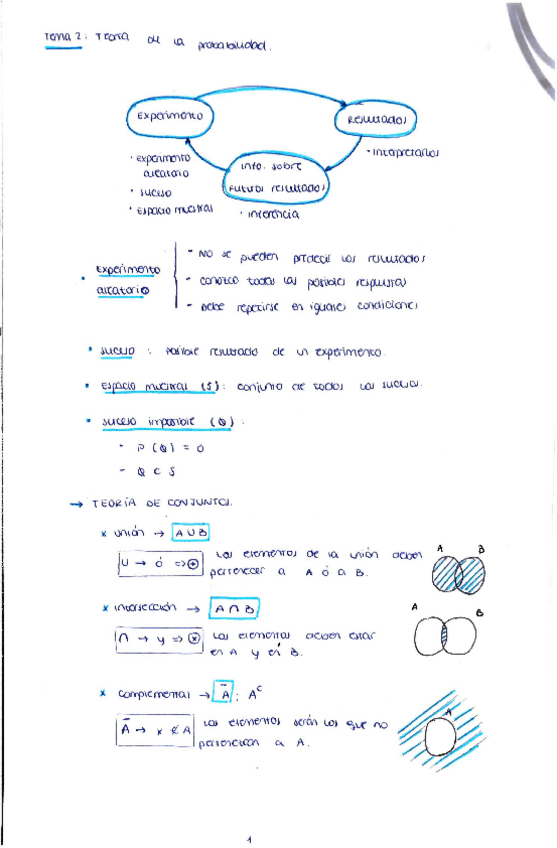 Tema 2: Teoría de la probabilidad.
Experimento
Resultados
Info. sobre
futuros resultados
· experimento
aleatorio
· suceso
· espacio muestral
· interpretarlos
· inferencia
· experimento
aleatorio
- NO se pueden predecir los resultados
- conozco todas las posibles respuestas
- Debe repetirse en iguales condiciones
· suceso : Posible resultado de un experimento.
· Espacio muestral (S): conjunto de todos los sucesos.
· suceso imposible (Ø) :
- P (Ø) = 0
- Ø ⊂ S
→ TEORÍA DE CONJUNTOS.
x unión → A ∪ B
∪ → ó ⇒ ⊕
Los elementos de la unión deben
pertenecer a A ó a B.
A B
x intersección → A ∩ B
∩ → y ⇒ ⊗
Los elementos deben estar
en A y en B.
A B
x complemental → Ā : Aᶜ
Ā → x ∉ A
Los elementos serán los que no
pertenezcan a A.
A
1